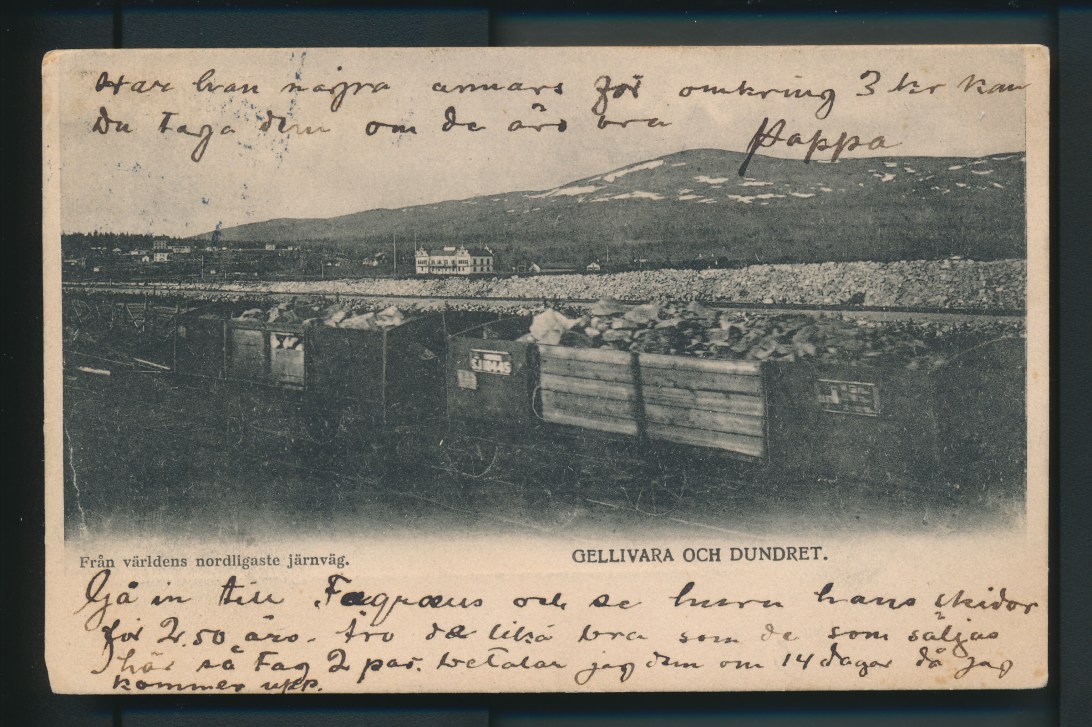 Har han några annars för omkring 3 kr kan
Du taga dem om de äro bra Pappa
Från världens nordligaste järnväg.
GELLIVARA OCH DUNDRET.
Gå in till Fagræus och se huru hans skidor
för 2.50 äro. Äro de lika bra som de som säljas
här så tag 2 par. Betalar jag dem om 14 dagar då jag
kommer upp.